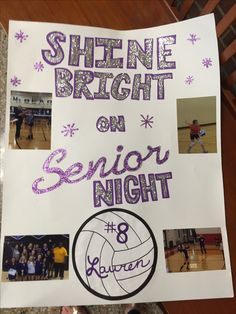 SHINE
BRIGHT
ON
Senior
NIGHT
#8
Lauren